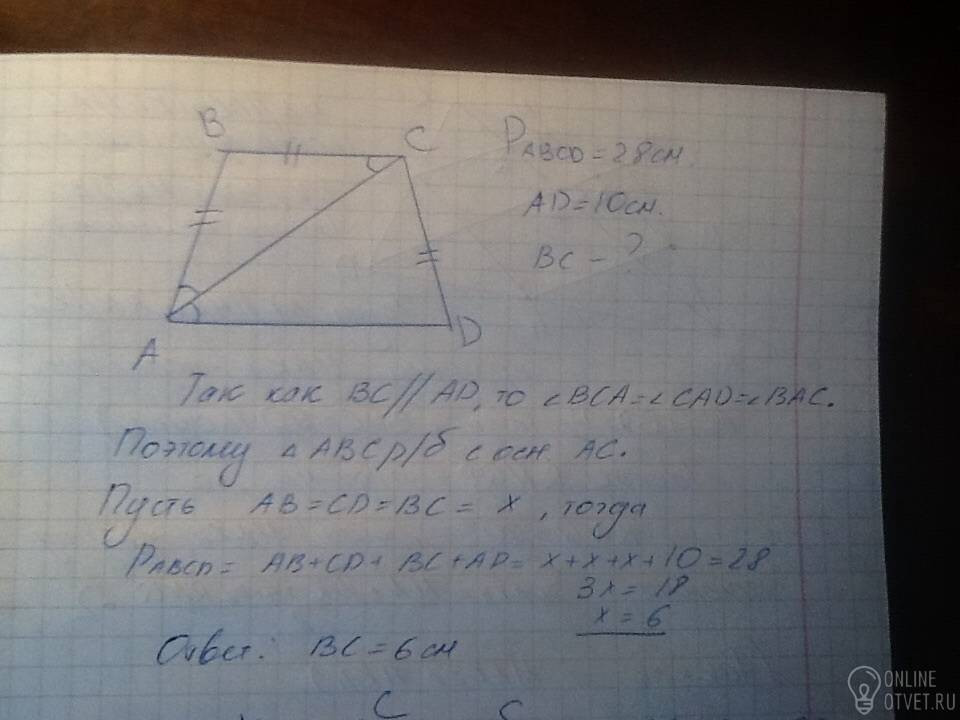 B
C
P ABCD = 28см
AD = 10см.
BC - ?
A
D
Так как BC // AD, то ∠BCA = ∠CAD = ∠BAC.
Поэтому △ ABC р/б с осн AC.
Пусть AB = CD = BC = x, тогда
P ABCD = AB + CD + BC + AD = x + x + x + 10 = 28
3x = 18
x = 6
Ответ: BC = 6 см
C
ONLINE
OTVET.RU